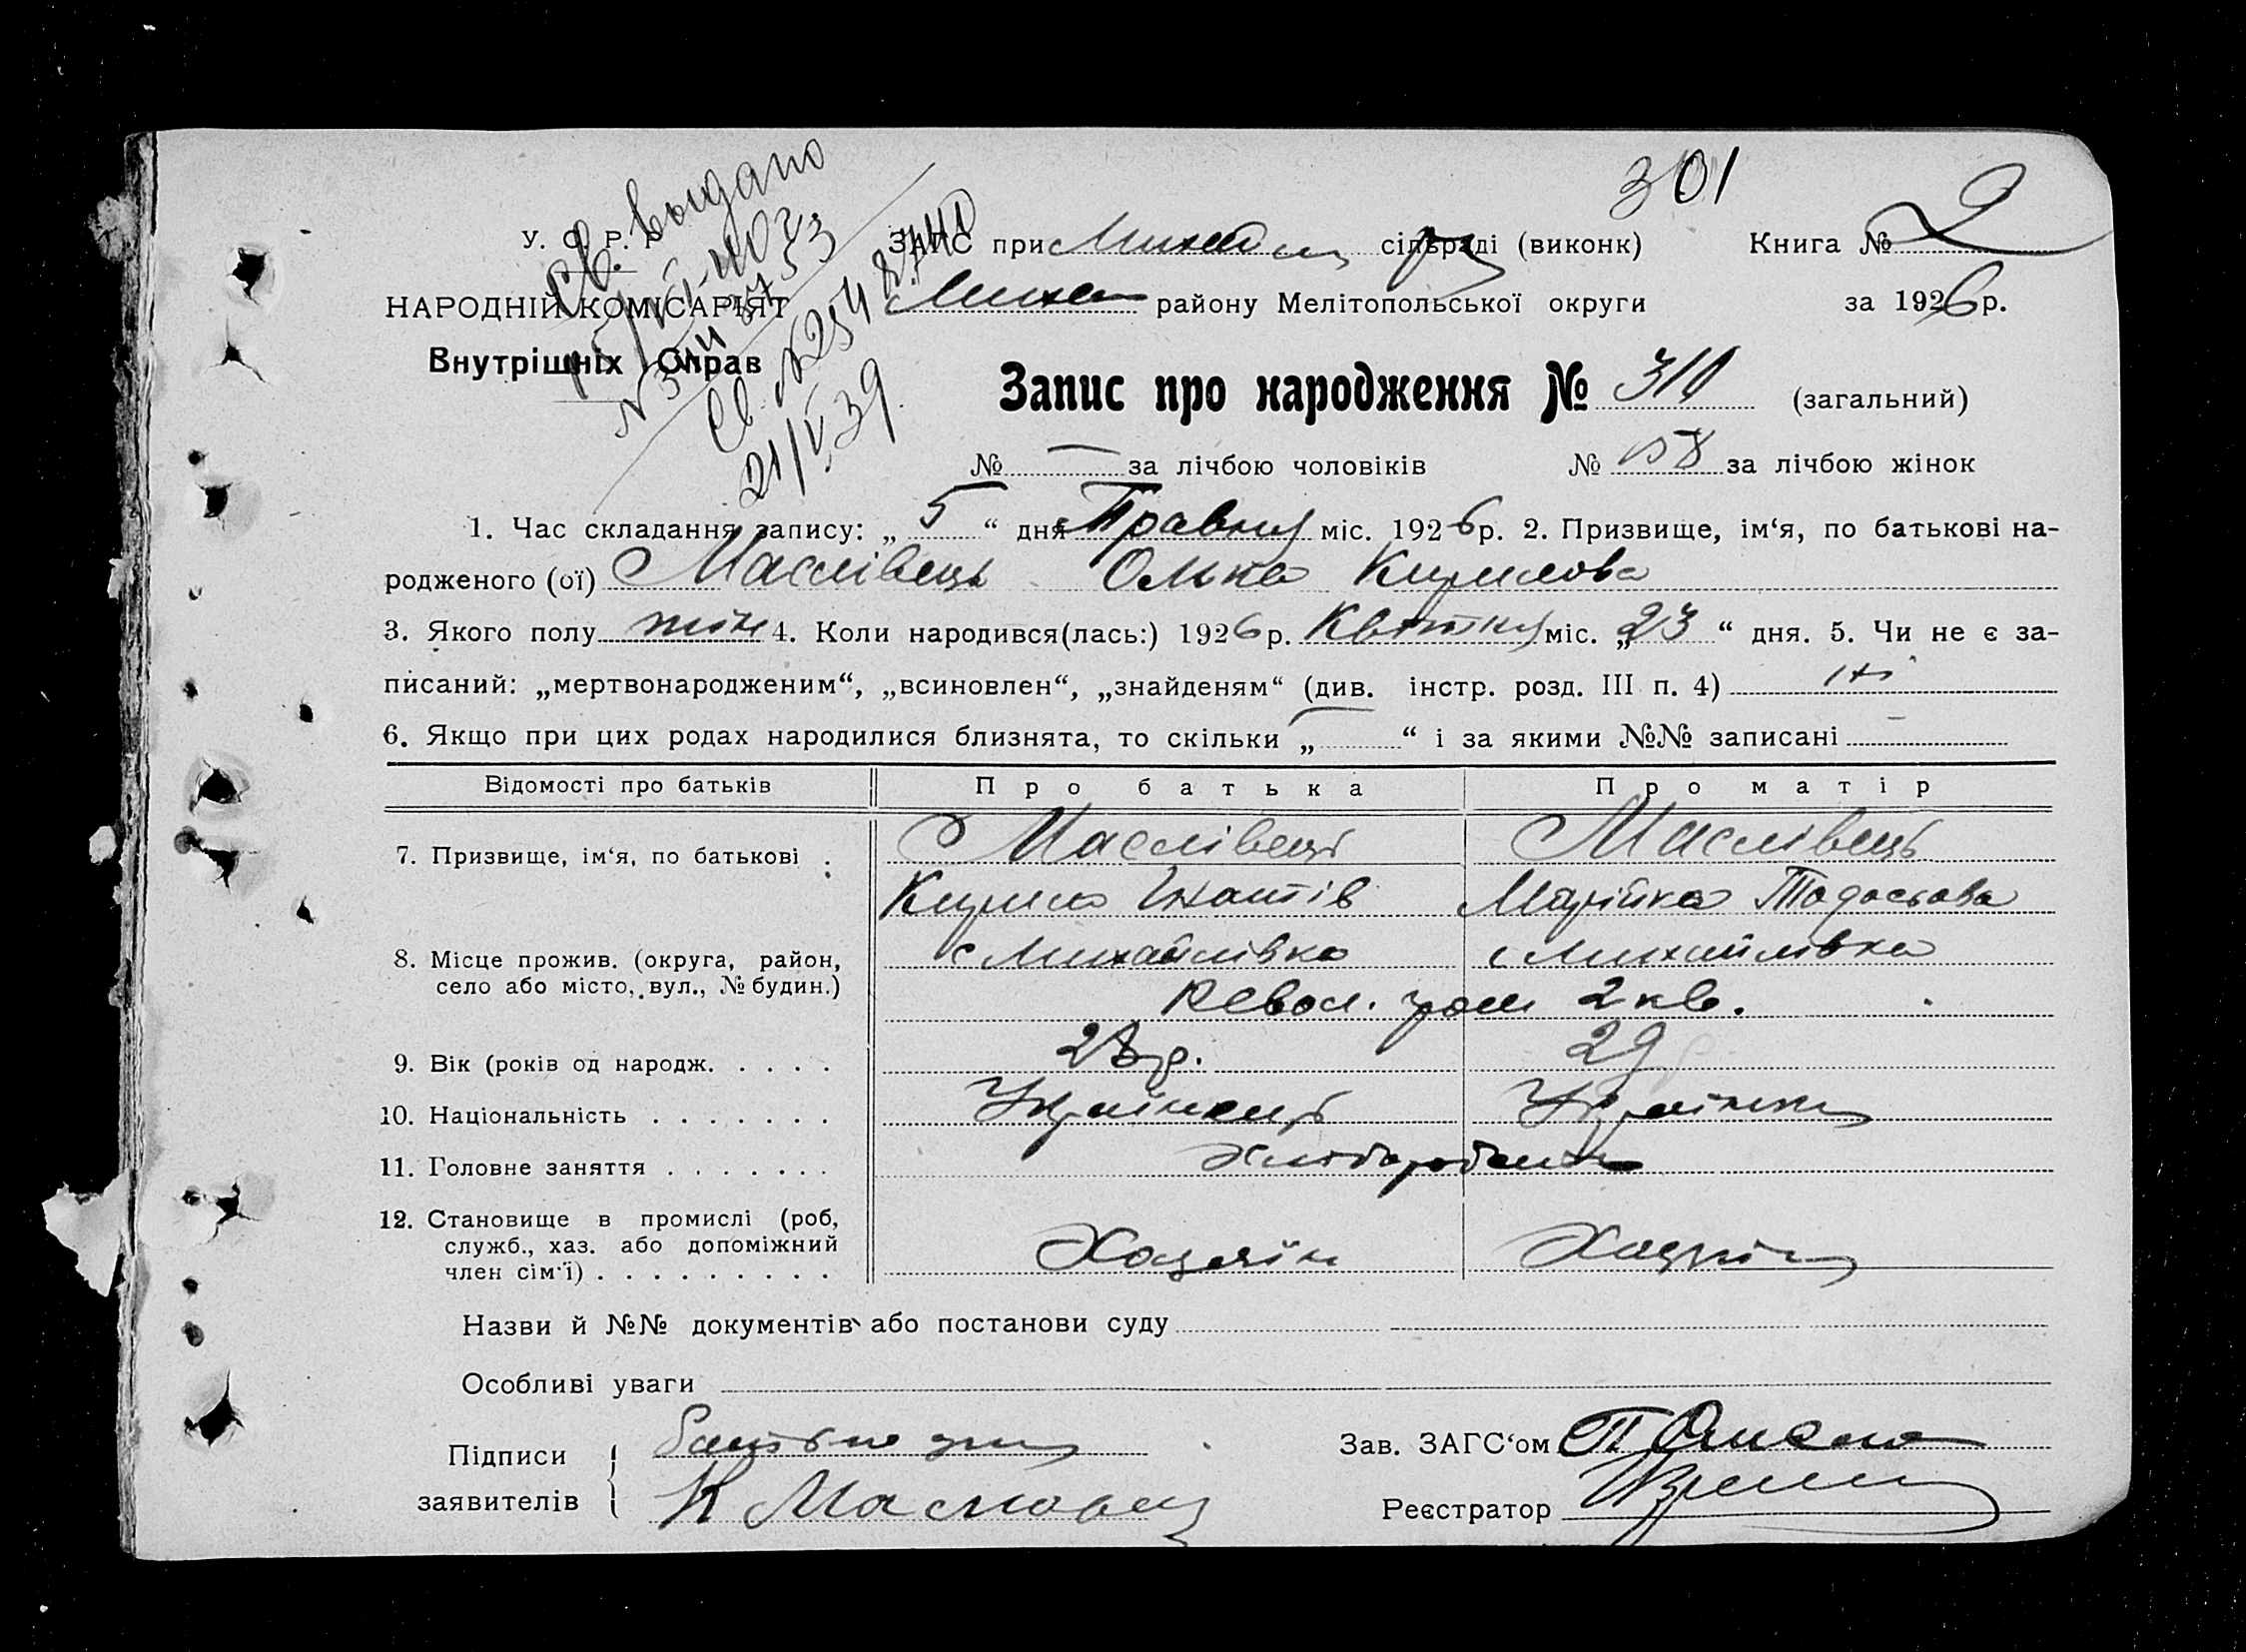 301
У. С. Р. Р.
Св. выдано
НАРОДНІЙ КОМІСАРІЯТ
Внутрішніх Справ
Св. №254
21/V 39
ЗАПИС при сільраді (виконк) Книга № 2
Миха району Мелітопольської округи за 1926 р.
Запис про народження № 310 (загальний)
№ — за лічбою чоловіків № 158 за лічбою жінок
1. Час складання запису: „ 5 “ дня Травня міс. 1926 р. 2. Призвище, ім‘я, по батькові на-
родженого (ої) Маслівець Олька Кирилова
3. Якого полу жін 4. Коли народився(лась:) 1926 р. Квітня міс. „ 23 “ дня. 5. Чи не є за-
писаний: „мертвонародженим“, „всиновлен“, „знайденям“ (див. інстр. розд. III п. 4) ні
6. Якщо при цих родах народилися близнята, то скільки „ — “ і за якими №№ записані —
Відомості про батьків Про батька Про матір
7. Призвище, ім‘я, по батькові : Маслівець Маслівець
Кирило Гнатів Марійка Тодосьова
8. Місце прожив. (округа, район, с Михайлівка с Михайлівка
село або місто, вул., № будин.) Револ. гром 2 кв.
9. Вік (років од народж. . . . . 28 р. 29
10. Національність . . . . . . . Українець Українка
11. Головне заняття . . . . . . . Хліборобство
12. Становище в промислі (роб,
служб., хаз. або допоміжний
член сім‘ї) . . . . . . . . . Хазяїн Хазяїн
Назви й №№ документів або постанови суду
Особливі уваги
Підписи Зав. ЗАГС‘ом
заявителів К Масловец Реєстратор